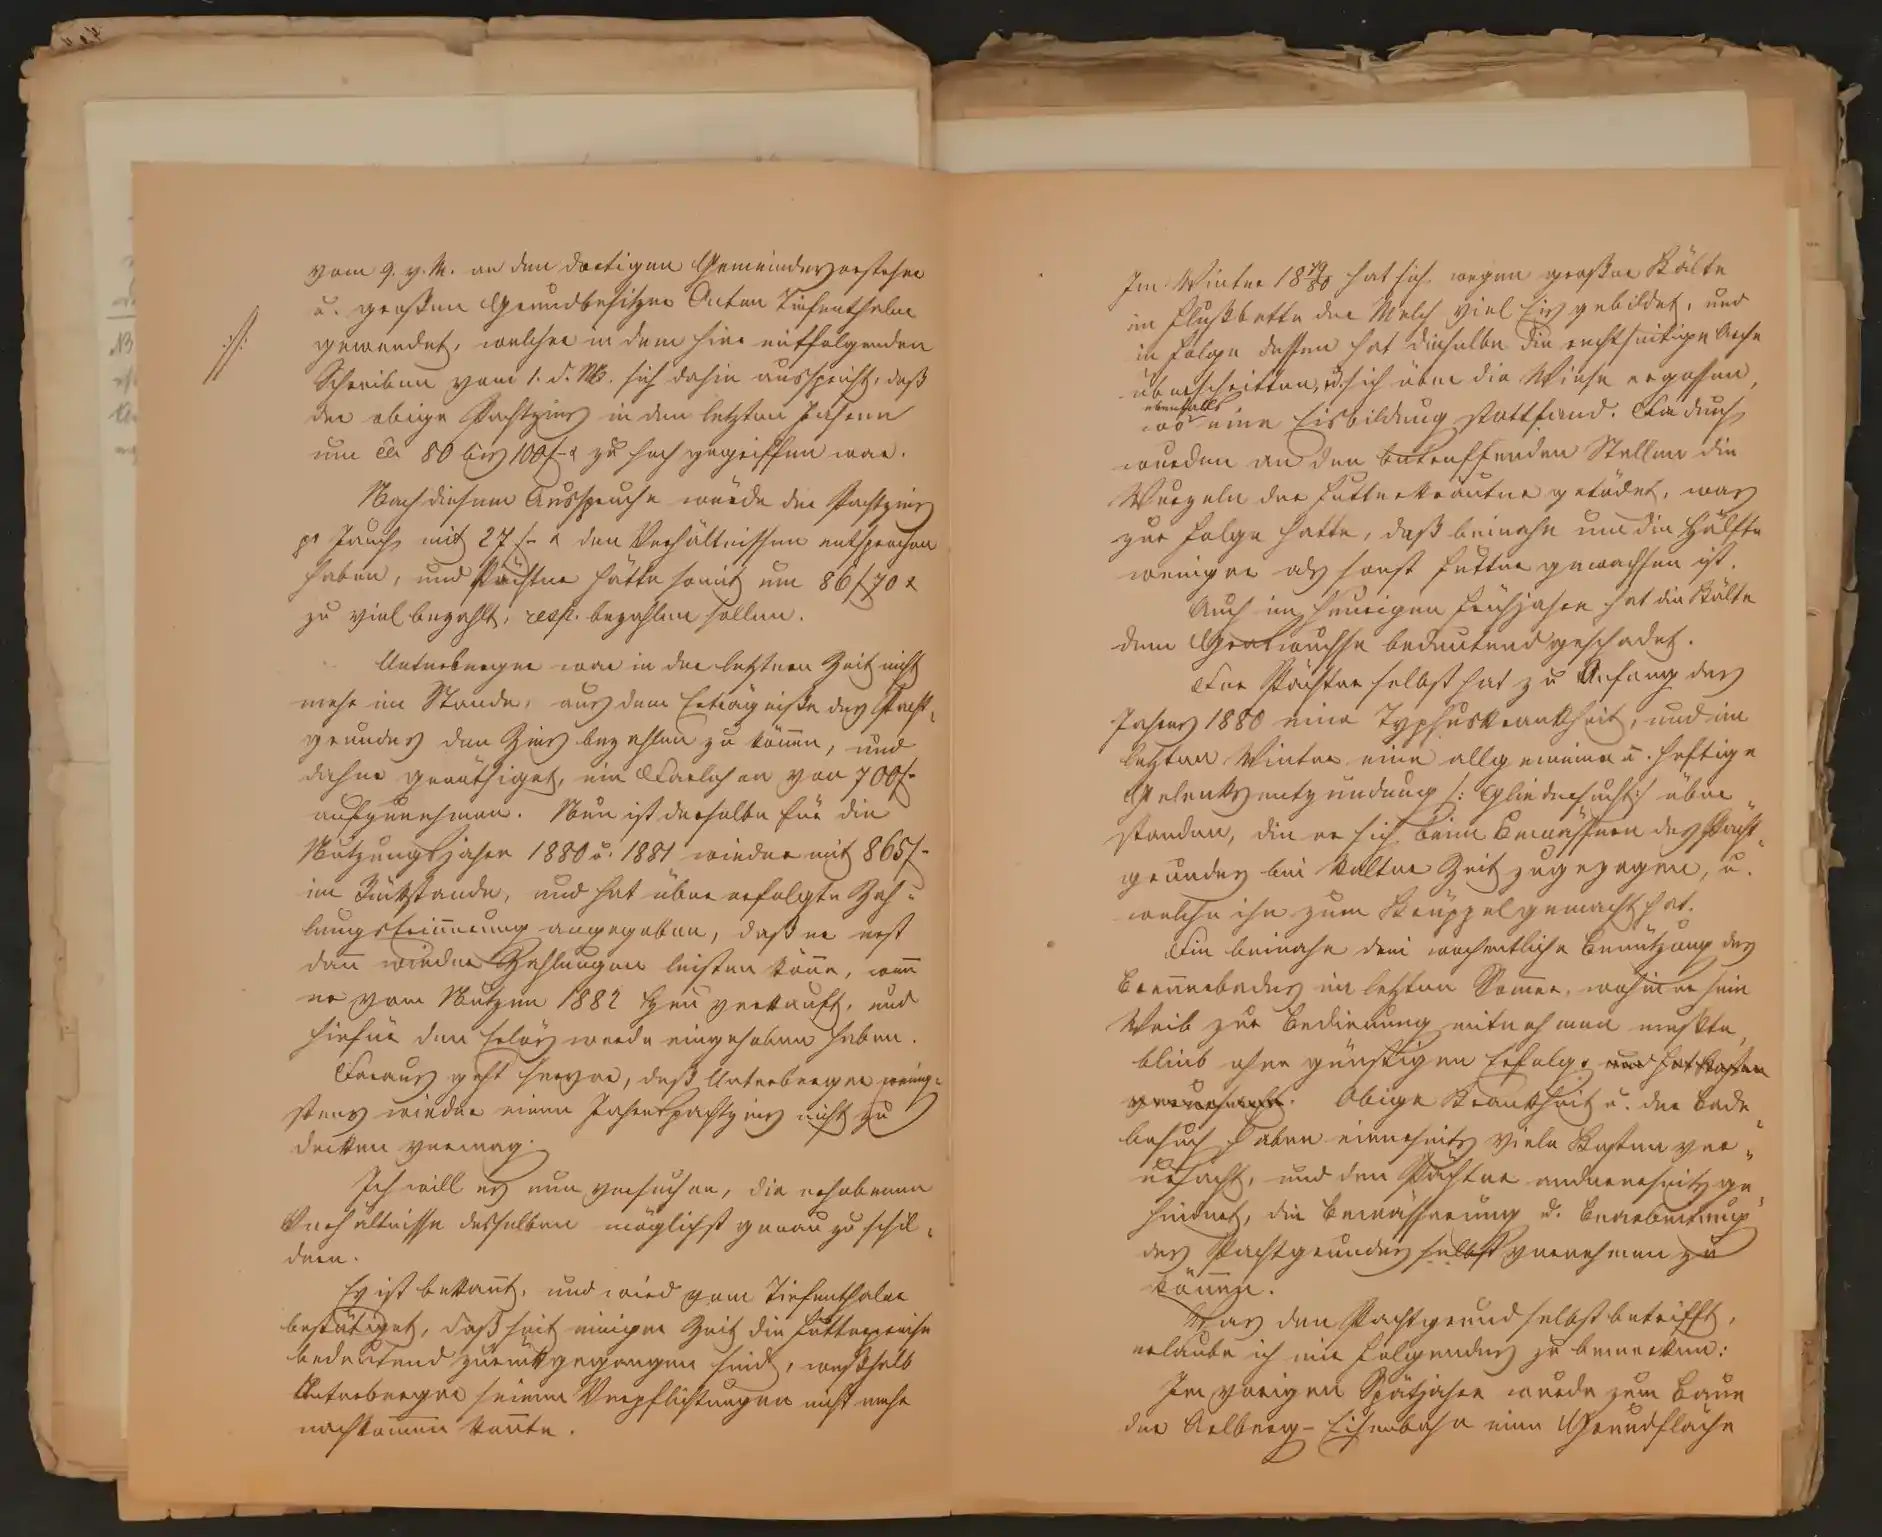 vom 9. v. M. an den dortigen Gemeindevorsteher
u. großen Grundbesitzer Anton Tiefenthaler
gewendet, welcher in dem hier mitfolgenden
./.
Schreiben vom 1. d. M. sich dahin ausspricht, daß
der obige Pachtzins in den letzten Jahren
um ca 80 bis 100 f - x zu hoch gegriffen war.
Nach diesem Ausspruche würde der Pachtzins
pr Jauch mit 27 f - x den Verhältnissen entsprochen
haben, und Pächter hätte somit um 86 f 70 x
zu viel bezahlt, resp. bezahlen sollen.
Unterberger war in der letzteren Zeit nicht
mehr im Stande, aus dem Erträgniße des Pacht-
grundes den Zins bezahlen zu können, und
daher genöthiget, ein Darlehen von 700 f -
aufzunehmen. Nun ist derselbe für die
Nutzungsjahre 1880 u. 1881 wieder mit 865 f -
im Rückstande, und hat über erfolgte Zah-
lungserinnerung angegeben, daß er erst
dann wieder Zahlungen leisten könne, wenn
er vom Nutzen 1882 Heu verkauft, und
hiefür den Erlös werde eingehoben haben.
Daraus geht hervor, daß Unterberger wenig-
stens wieder einen Jahrespachtzins nicht zu
decken vermag.
Ich will es nun versuchen, die erhobenen
Verhältnisse desselben möglichst genau zu schil-
dern.
Es ist bekannt, und wird vom Tiefenthaler
bestätiget, daß seit einiger Zeit die Futterpreise
bedeutend zurückgegangen sind, weßhalb
Unterberger seinen Verpflichtungen nicht mehr
nachkommen konnte.
Im Winter 18 79/80 hat sich wegen großer Kälte
im Flußbette der Welch viel Eis gebildet, und
in Folge dessen hat dieselbe die rechtseitige Arche
überschritten, u. sich über die Wiese ergossen,
ebenfalls
wo eine Eisbildung stattfand. Dadurch
wurden an den betreffenden Stellen die
Wurzeln der Futterkräuter getödet, was
zur Folge hatte, daß beinahe um die Hälfte
weniger als sonst Futter gewachsen ist.
Auch im heurigen Frühjahre hat die Kälte
dem Graswuchse bedeutend geschadet.
Der Pächter selbst hat zu Anfang des
Jahres 1880 eine Typhuskrankheit, und im
letzten Winter eine allgemeine u. heftige
Gelenksentzündung /: Gliedersucht :/ über
standen, die er sich beim Bewässern des Pacht-
grundes bei kalter Zeit zugezogen, u.
welche ihn zum Krüppel gemacht hat.
Die beinahe drei wochentliche Benützung des
Brennerbades im letzten Sommer, wohin er sein
Weib zur Bedienung mitnehmen mußte,
blieb ohne günstigen Erfolg. und hat Kosten
verursacht. Obige Krankheit u. der Bade-
besuch haben einerseits viele Kosten ver-
ursacht, und den Pächter andererseits ge-
hindert, die Bewässerung u. Bearbeitung
des Pachtgrundes selbst vornehmen zu
können.
Was den Pachtgrund selbst betrifft,
erlaube ich mir Folgendes zu bemerken:
Im vorigen Spätjahre wurde zum Baue
der Arlberg-Eisenbahn eine Grundfläche